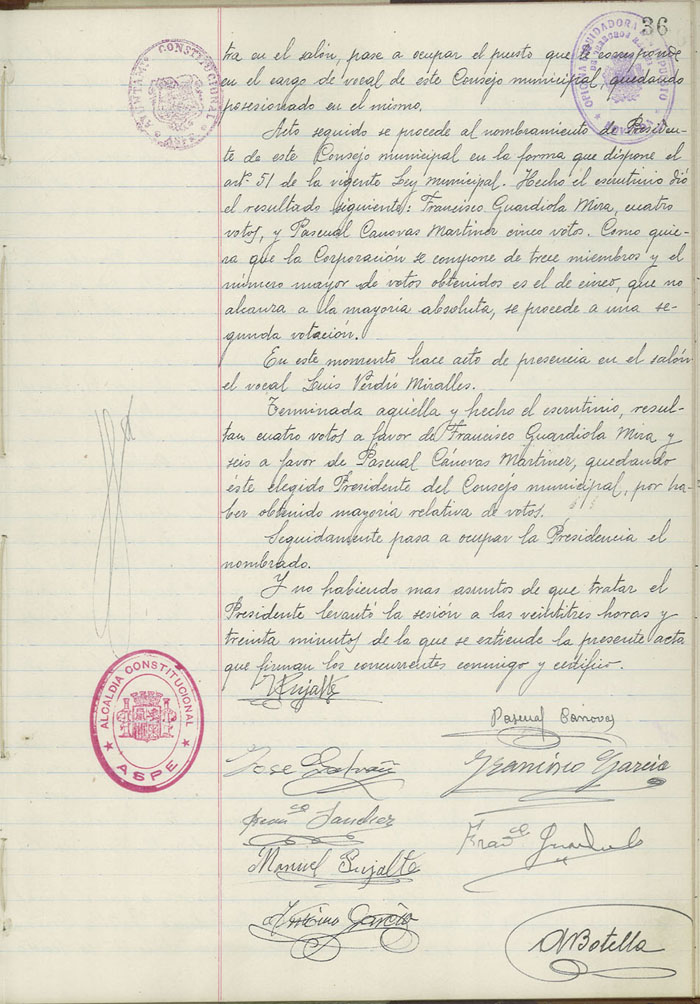 36
AYUNTAMIENTO CONSTITUCIONAL
ASPE
LIQUIDADORA
tra en el salón, pase a ocupar el puesto que le corresponde
en el cargo de vocal de este Consejo municipal, quedando
posesionado en el mismo.
Acto seguido se procede al nombramiento de Presiden-
te de este Consejo municipal en la forma que dispone el
artº 51 de la vigente Ley Municipal. Hecho el escrutinio dió
el resultado siguiente: Francisco Guardiola Mira, cuatro
votos, y Pascual Cánovas Martinez cinco votos. Como quie-
ra que la Corporación se compone de trece miembros y el
número mayor de votos obtenidos es el de cinco, que no
alcanza a la mayoría absoluta, se procede a una se-
gunda votación.
En este momento hace acto de presencia en el salón
el vocal Luis Verdú Miralles.
Terminada aquélla y hecho el escrutinio, resul-
tan cuatro votos a favor de Francisco Guardiola Mira y
seis a favor de Pascual Cánovas Martinez, quedando
éste elegido Presidente del Consejo municipal, por ha-
ber obtenido mayoría relativa de votos.
Seguidamente pasa a ocupar la Presidencia el
nombrado.
Y no habiendo mas asuntos de que tratar el
Presidente levantó la sesión a las veintitres horas y
treinta minutos de la que se extiende la presente acta
que firman los concurrentes conmigo y certifico.
ALCALDIA CONSTITUCIONAL
ASPE
Pujalte
Pascual Canovas
Jose Galvañ
Francisco García
Franco Sanchez
Franco
Manuel Pujalte
Antonio García
ABotella